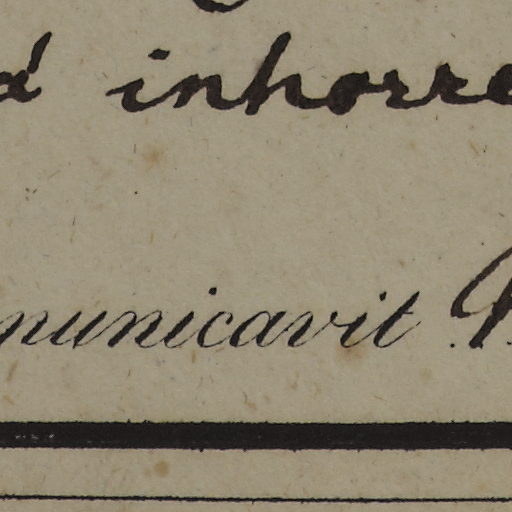 d inhorre
municavit